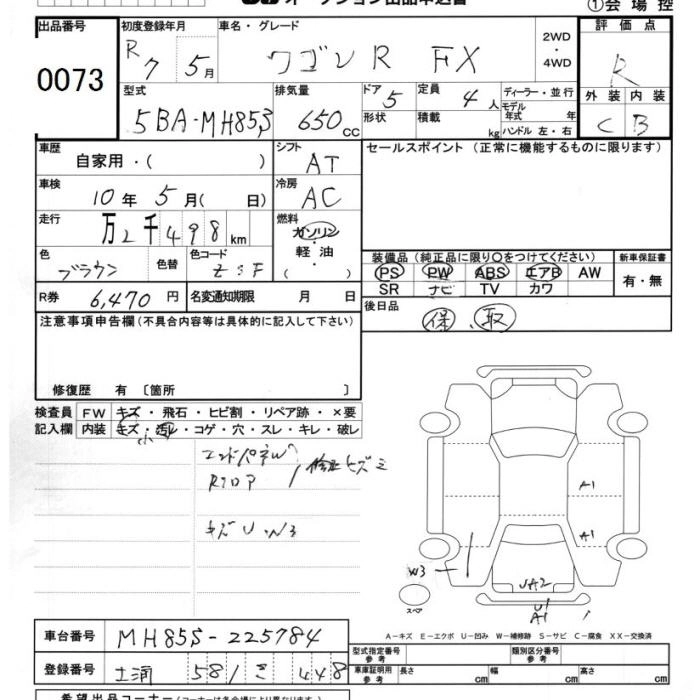 オークション出品申込書
①会場控
出品番号 0073
初度登録年月 R 7 5月
車名・グレード ワゴンR FX
2WD・4WD
評価点 R
型式 5BA-MH85S
排気量 650 cc
ドア 5
形状
定員 4 人
積載 kg
ディーラー・並行
モデル年式 年式
ハンドル 左・右
外装 C
内装 B
車歴 自家用・( )
シフト AT
セールスポイント(正常に機能するものに限ります)
車検 10年 5月( 日)
冷房 AC
走行 万2千498 km
燃料 ガソリン・軽油・( )
色 ブラウン
色替
色コード Z:F
装備品(純正品に限り○をつけてください)
PS PW ABS エアB AW
SR ナビ TV カワ
新車保証書
有・無
R券 6,470 円
名変通知期限 月 日
後日品 保、取
注意事項申告欄(不具合内容等は具体的に記入して下さい)
修復歴 有 〔箇所 〕
検査員記入欄
FW キズ・飛石・ヒビ割・リペア跡・×要
内装 キズ・汚レ・コゲ・穴・スレ・キレ・破レ
小
エンドパネル
Rフロア
キズU・W3
A1
A1
W3
UA2
U1
A1
スペア
A-キズ E-エクボ U-凹み W-補修跡 S-サビ C-腐食 XX-交換済
車台番号 MH85S-225784
登録番号 土浦 581 さ 448
型式指定番号 参考
類別区分番号 参考
車庫証明用 参考 長さ cm 幅 cm 高さ cm
希望出品コーナー(コーナーは各会場により異なります)